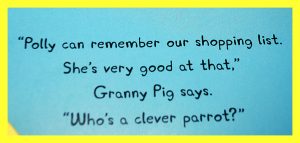 “Polly can remember our shopping list.
She’s very good at that,”
Granny Pig says.
“Who’s a clever parrot?”